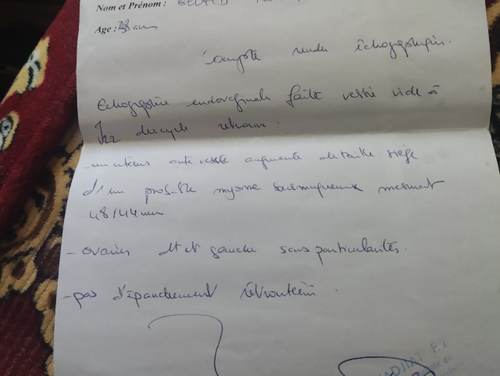 Nom et Prénom :
Age : 38 ans
Compte rendu échographie.
Echographie endovaginale faite vessie vide à
J12 du cycle retrouve :
- un uterus anteversé augmenté de taille siège
d'un probable myome sousmuqueux mesurant
48/44mm
- ovaires dt et gauche sans particularités.
- pas d'épanchement rétroutérin